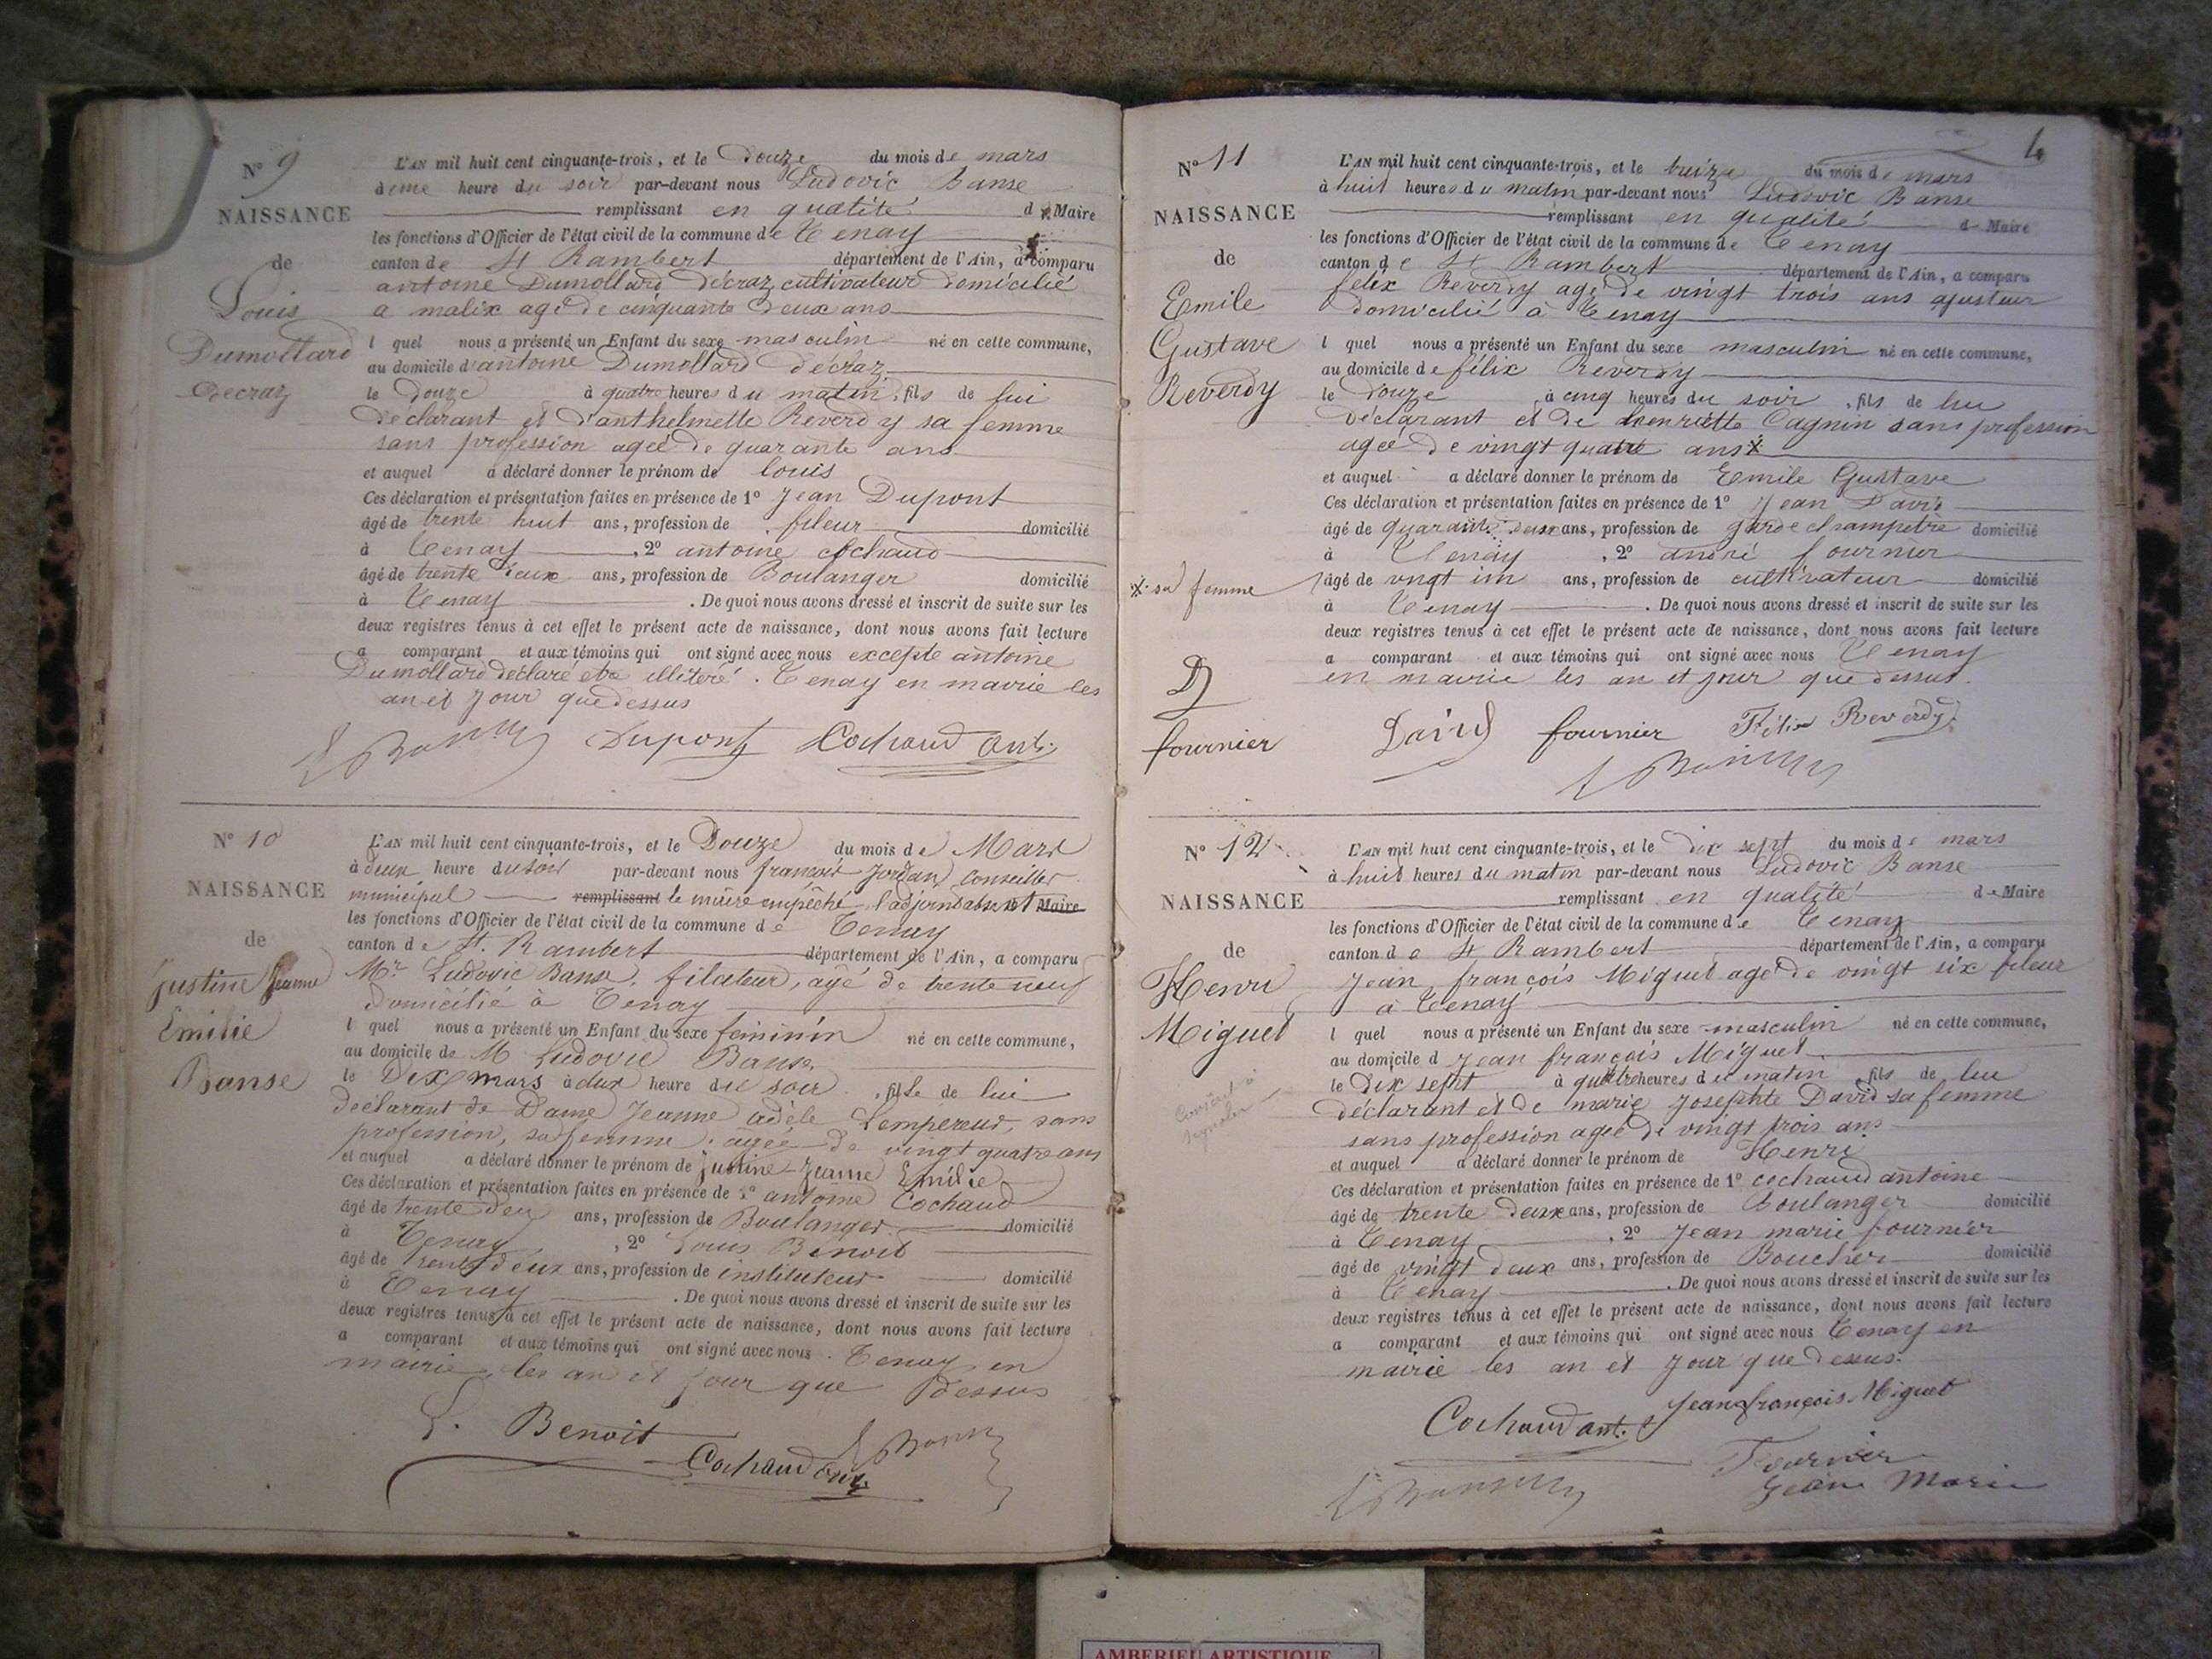 N° 9
NAISSANCE
de
Louis
Dumollard
Decraz
L'AN mil huit cent cinquante-trois, et le Douze du mois de mars
à une heure du soir par-devant nous Ludovic Banse
remplissant en qualité de Maire
les fonctions d'Officier de l'état civil de la commune de Tenay
canton de St Rambert département de l'Ain, a comparu
antoine Dumollard Décraz cultivateur domicilié
a malix agé de cinquante deux ans
l quel nous a présenté un Enfant du sexe masculin né en cette commune,
au domicile d'antoine Dumollard décraz
le douze à quatre heures du matin, fils de lui
declarant et d'anthelmette Reverdy sa femme
sans profession agée de quarante ans
et auquel a déclaré donner le prénom de louis
Ces déclaration et présentation faites en présence de 1° Jean Dupont
âgé de trente huit ans, profession de fileur domicilié
à Tenay , 2° antoine Cochaud
âgé de trente deux ans, profession de Boulanger domicilié
à Tenay . De quoi nous avons dressé et inscrit de suite sur les
deux registres tenus à cet effet le présent acte de naissance, dont nous avons fait lecture
a comparant et aux témoins qui ont signé avec nous excepte antoine
Dumollard déclaré etre illitéré. Tenay en mairie les
an et jour que dessus
Dupont Cochaud ant.
N° 10
NAISSANCE
de
Justine Jeanne
Emilie
Banse
L'AN mil huit cent cinquante-trois, et le Douze du mois de Mars
à deux heure du soir par-devant nous françois Jordan, Conseiller
municipal remplissant le maire empêché l'adjoint absent Maire
les fonctions d'Officier de l'état civil de la commune de Tenay
canton de St. Rambert département de l'Ain, a comparu
Mr Ludovic Banse, filateur, agé de trente neuf
Domicilié à Tenay
l quel nous a présenté un Enfant du sexe feminin né en cette commune,
au domicile de M Ludovic Banse
le Dix mars à deux heure du soir , fille de lui
declarant de Dame Jeanne adèle Lempereur, sans
profession, sa femme, agée de vingt quatre ans
et auquel a déclaré donner le prénom de Justine Jeanne Emilie
Ces déclaration et présentation faites en présence de 1° antoine Cochaud
âgé de trente deux ans, profession de Boulanger domicilié
à Tenay , 2° Louis Benoit
âgé de trente deux ans, profession de instituteur domicilié
à Tenay . De quoi nous avons dressé et inscrit de suite sur les
deux registres tenus à cet effet le présent acte de naissance, dont nous avons fait lecture
a comparant et aux témoins qui ont signé avec nous. Tenay en
mairie les an et jour que dessus
L. Benoit
Cochaud ant.
4
N° 11
NAISSANCE
de
Emile
Gustave
Reverdy
L'AN mil huit cent cinquante-trois, et le treize du mois de mars
à huit heures du matin par-devant nous Ludovic Banse
remplissant en qualité de Maire
les fonctions d'Officier de l'état civil de la commune de Tenay
canton de St Rambert département de l'Ain, a comparu
félix Reverdy agé de vingt trois ans ajusteur
domicilié à Tenay
l quel nous a présenté un Enfant du sexe masculin né en cette commune,
au domicile de félix Reverdy
le douze à cinq heures du soir , fils de lui
declarant et de henriette Cagnin sans profession
agée de vingt quatre ans x
et auquel a déclaré donner le prénom de Emile Gustave
Ces déclaration et présentation faites en présence de 1° Jean David
âgé de quarante deux ans, profession de garde champetre domicilié
à Tenay , 2° andré fournier
x sa femme
âgé de vingt un ans, profession de cultivateur domicilié
à Tenay . De quoi nous avons dressé et inscrit de suite sur les
deux registres tenus à cet effet le présent acte de naissance, dont nous avons fait lecture
a comparant et aux témoins qui ont signé avec nous Tenay
en mairie les an et jour que dessus.
fournier
David fournier Félix Reverdy
N° 12
NAISSANCE
de
Henri
Miguet
L'AN mil huit cent cinquante-trois, et le dix sept du mois de mars
à huit heures du matin par-devant nous Ludovic Banse
remplissant en qualité de Maire
les fonctions d'Officier de l'état civil de la commune de Tenay
canton de St Rambert département de l'Ain, a comparu
Jean françois Miguet agé de vingt six fileur
à Tenay
l quel nous a présenté un Enfant du sexe masculin né en cette commune,
au domicile d Jean françois Miguet
le dix sept à quatre heures du matin , fils de lui
declarant et de marie Josephte David sa femme
sans profession agée de vingt trois ans
et auquel a déclaré donner le prénom de Henri
Ces déclaration et présentation faites en présence de 1° cochaud antoine
âgé de trente deux ans, profession de Boulanger domicilié
à Tenay , 2° Jean marie fournier
âgé de vingt deux ans, profession de Boucher domicilié
à Tenay . De quoi nous avons dressé et inscrit de suite sur les
deux registres tenus à cet effet le présent acte de naissance, dont nous avons fait lecture
a comparant et aux témoins qui ont signé avec nous Tenay en
mairie les an et jour que dessus.
Cochaud ant. Jean françois Miguet
Fournier
Jean Marie
AMBERIEU ARTISTIQUE